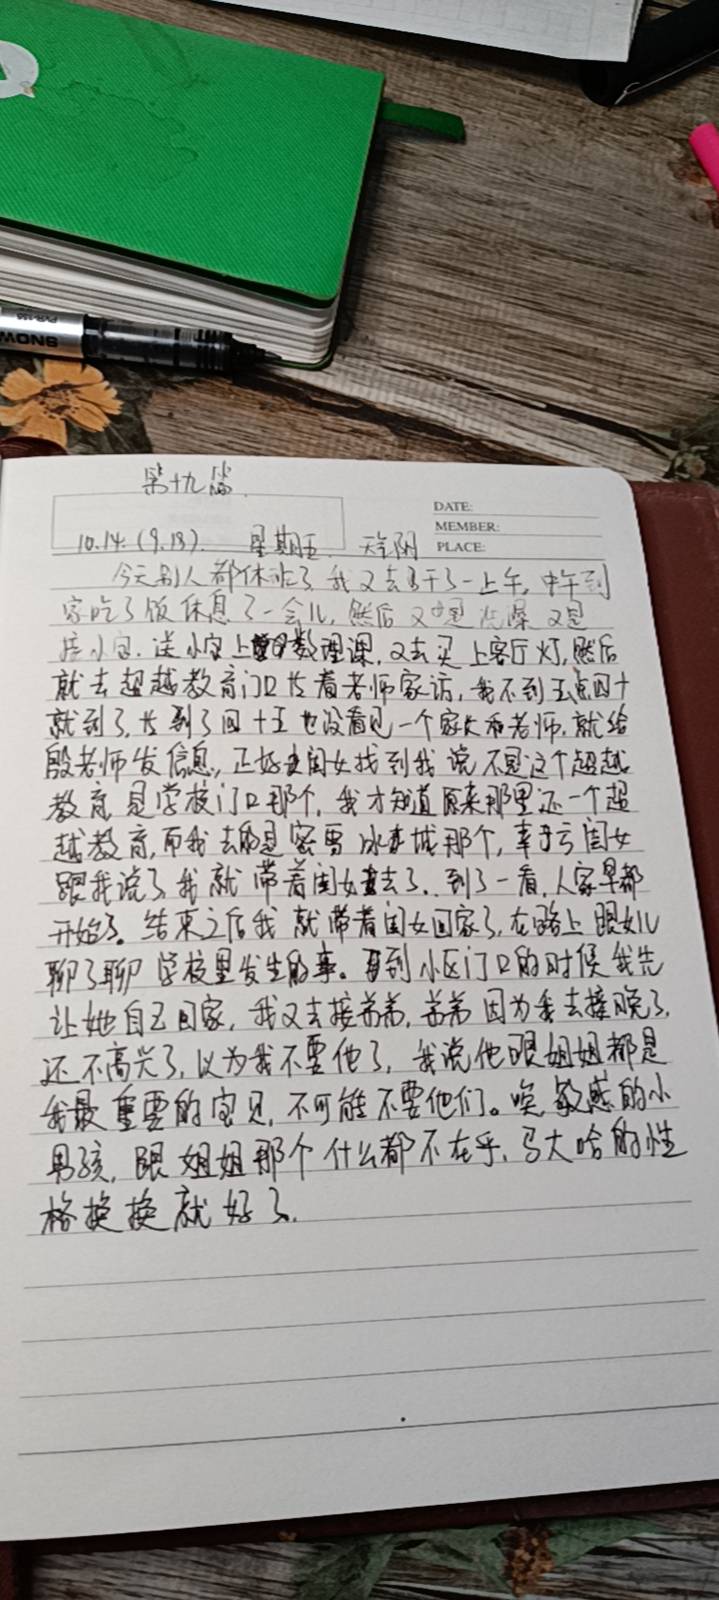 SNOW
PVR-155
第十九篇.
DATE:
MEMBER:
PLACE:
10.14.(9.19). 星期五. 天气阴
今天别人都休班了,我又去了干了一上午,中午到
家吃了饭休息了一会儿,然后又是洗澡又是
接小宝.送小宝上数理课,又去买上客厅灯,然后
就去超越教育门口找着老师家访,我不到五点四十
就到了,找到了四十五也没看见一个家长和老师.就给
殷老师发信息,正好闺女找到我说不是这个超越
教育是学校门口那个,我才知道原来那里还一个超
越教育,而我去的是蜜雪冰城那个,幸亏闺女
跟我说了,我就带着闺女去了.到了一看,人家早都
开始了。结束之后我就带着闺女回家了,在路上跟女儿
聊了聊学校里发生的事。到小区门口的时候我先
让她自己回家,我又去接弟弟,弟弟因为我去接晚了,
还不高兴了,以为我不要他了,我说他跟姐姐都是
我最重要的宝贝,不可能不要他们。唉,敏感的小
男孩,跟姐姐那个什么都不在乎,马大哈的性
格换换就好了.